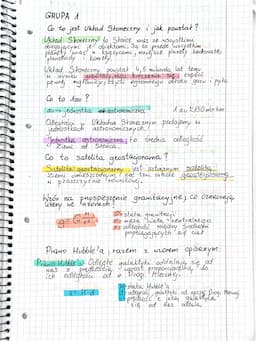 GRUPA 1
Co to jest Układ Słoneczny i jak powstał?
Układ Słoneczny to Słońce wraz ze wszystkimi
obiegającymi je obiektami. Są to przede wszystkim
planety wraz z księżycami, mniejsze planety karłowate,
planetoidy i komety.
Układ Słoneczny powstał 4,5 miliarda lat temu
w wyniku się części
pewnej ogromnego obłoku gazu i pyłu
Co to 1au?
au - jednostka astronomiczna 1 au ≈ 150 mln km
Odległości w Układzie Słonecznym podajemy w
jednostkach astronomicznych.
Jednostka astronomiczna to średnia odległość
Ziemi od Słońca.
Co to satelita geostacjonarny?
Satelita geostacjonarny jest sztucznym satelitą
Ziemi umieszczonym nad tzw. orbicie geostacjonarnej
w płaszczyźnie równikowej.
Wzór na przyspieszenie grawitacyjne, co oznaczają
litery we wzorach?
stała grawitacji
masa ciała centralnego
odległość między środkami
przyciągających się ciał
Prawo Hubble'a, razem z wzorem opisanym.
Prawo Hubble'a: Odległe galaktyki oddalają się od
nas z prędkością wprost proporcjonalną do
ich odległości od Drogi Mlecznej.
stała Hubble'a
odległość galaktyki od naszej Drogi Mlecznej
prędkość z jaką galaktyka
się od nas oddala